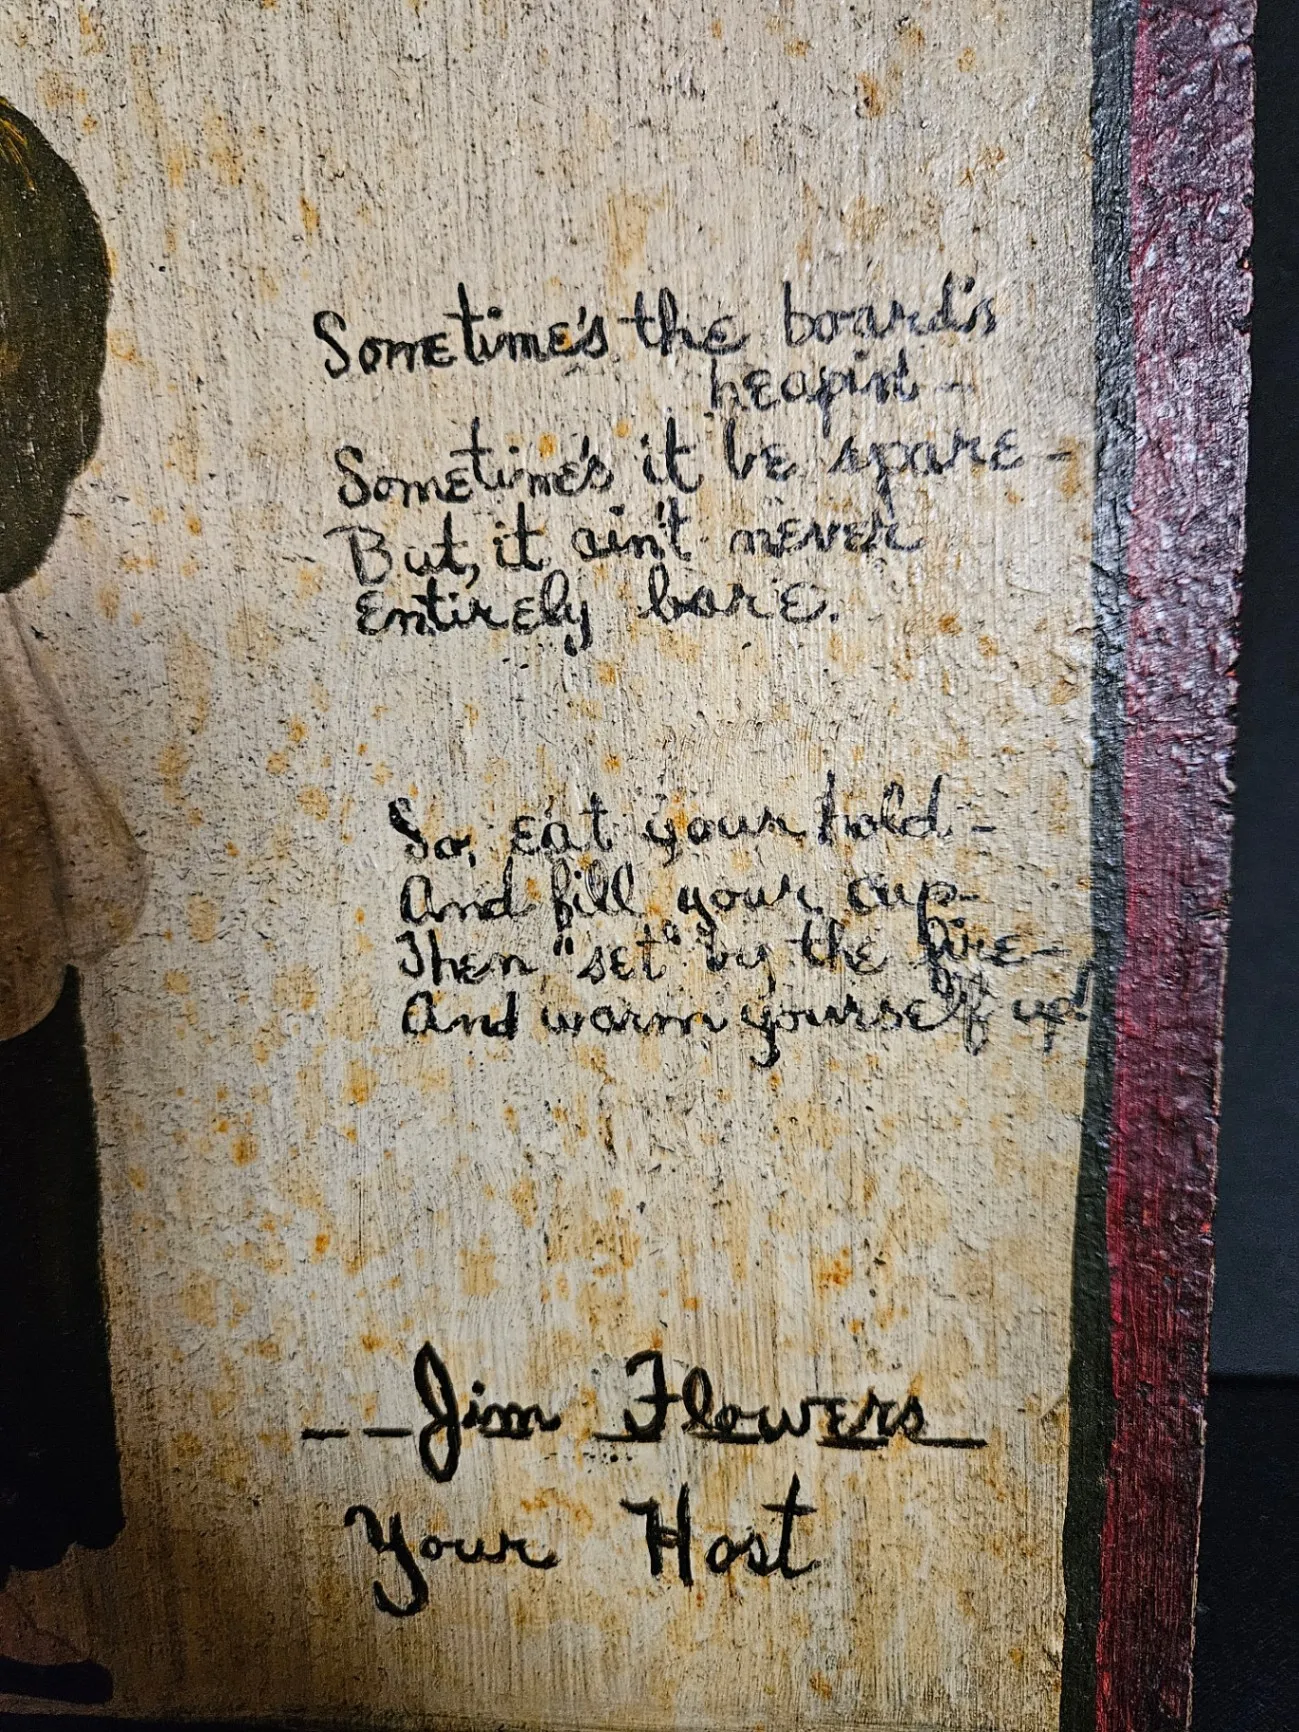 Sometime's the board's
heapin' -
Sometime's it be spare -
But, it ain't never
Entirely bare.
So, eat your hold -
And fill your cup -
Then "set" by the fire -
And warm yourself up!
__ Jim Flowers
Your Host